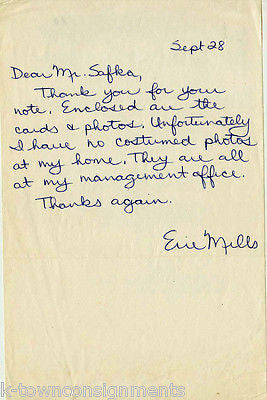 Sept 28
Dear Mr. Safka,
Thank you for your
note. Enclosed are the
cards & photos. Unfortunately
I have no costumed photos
at my home. They are all
at my management office.
Thanks again.
Erie Mills
k-townconsignments